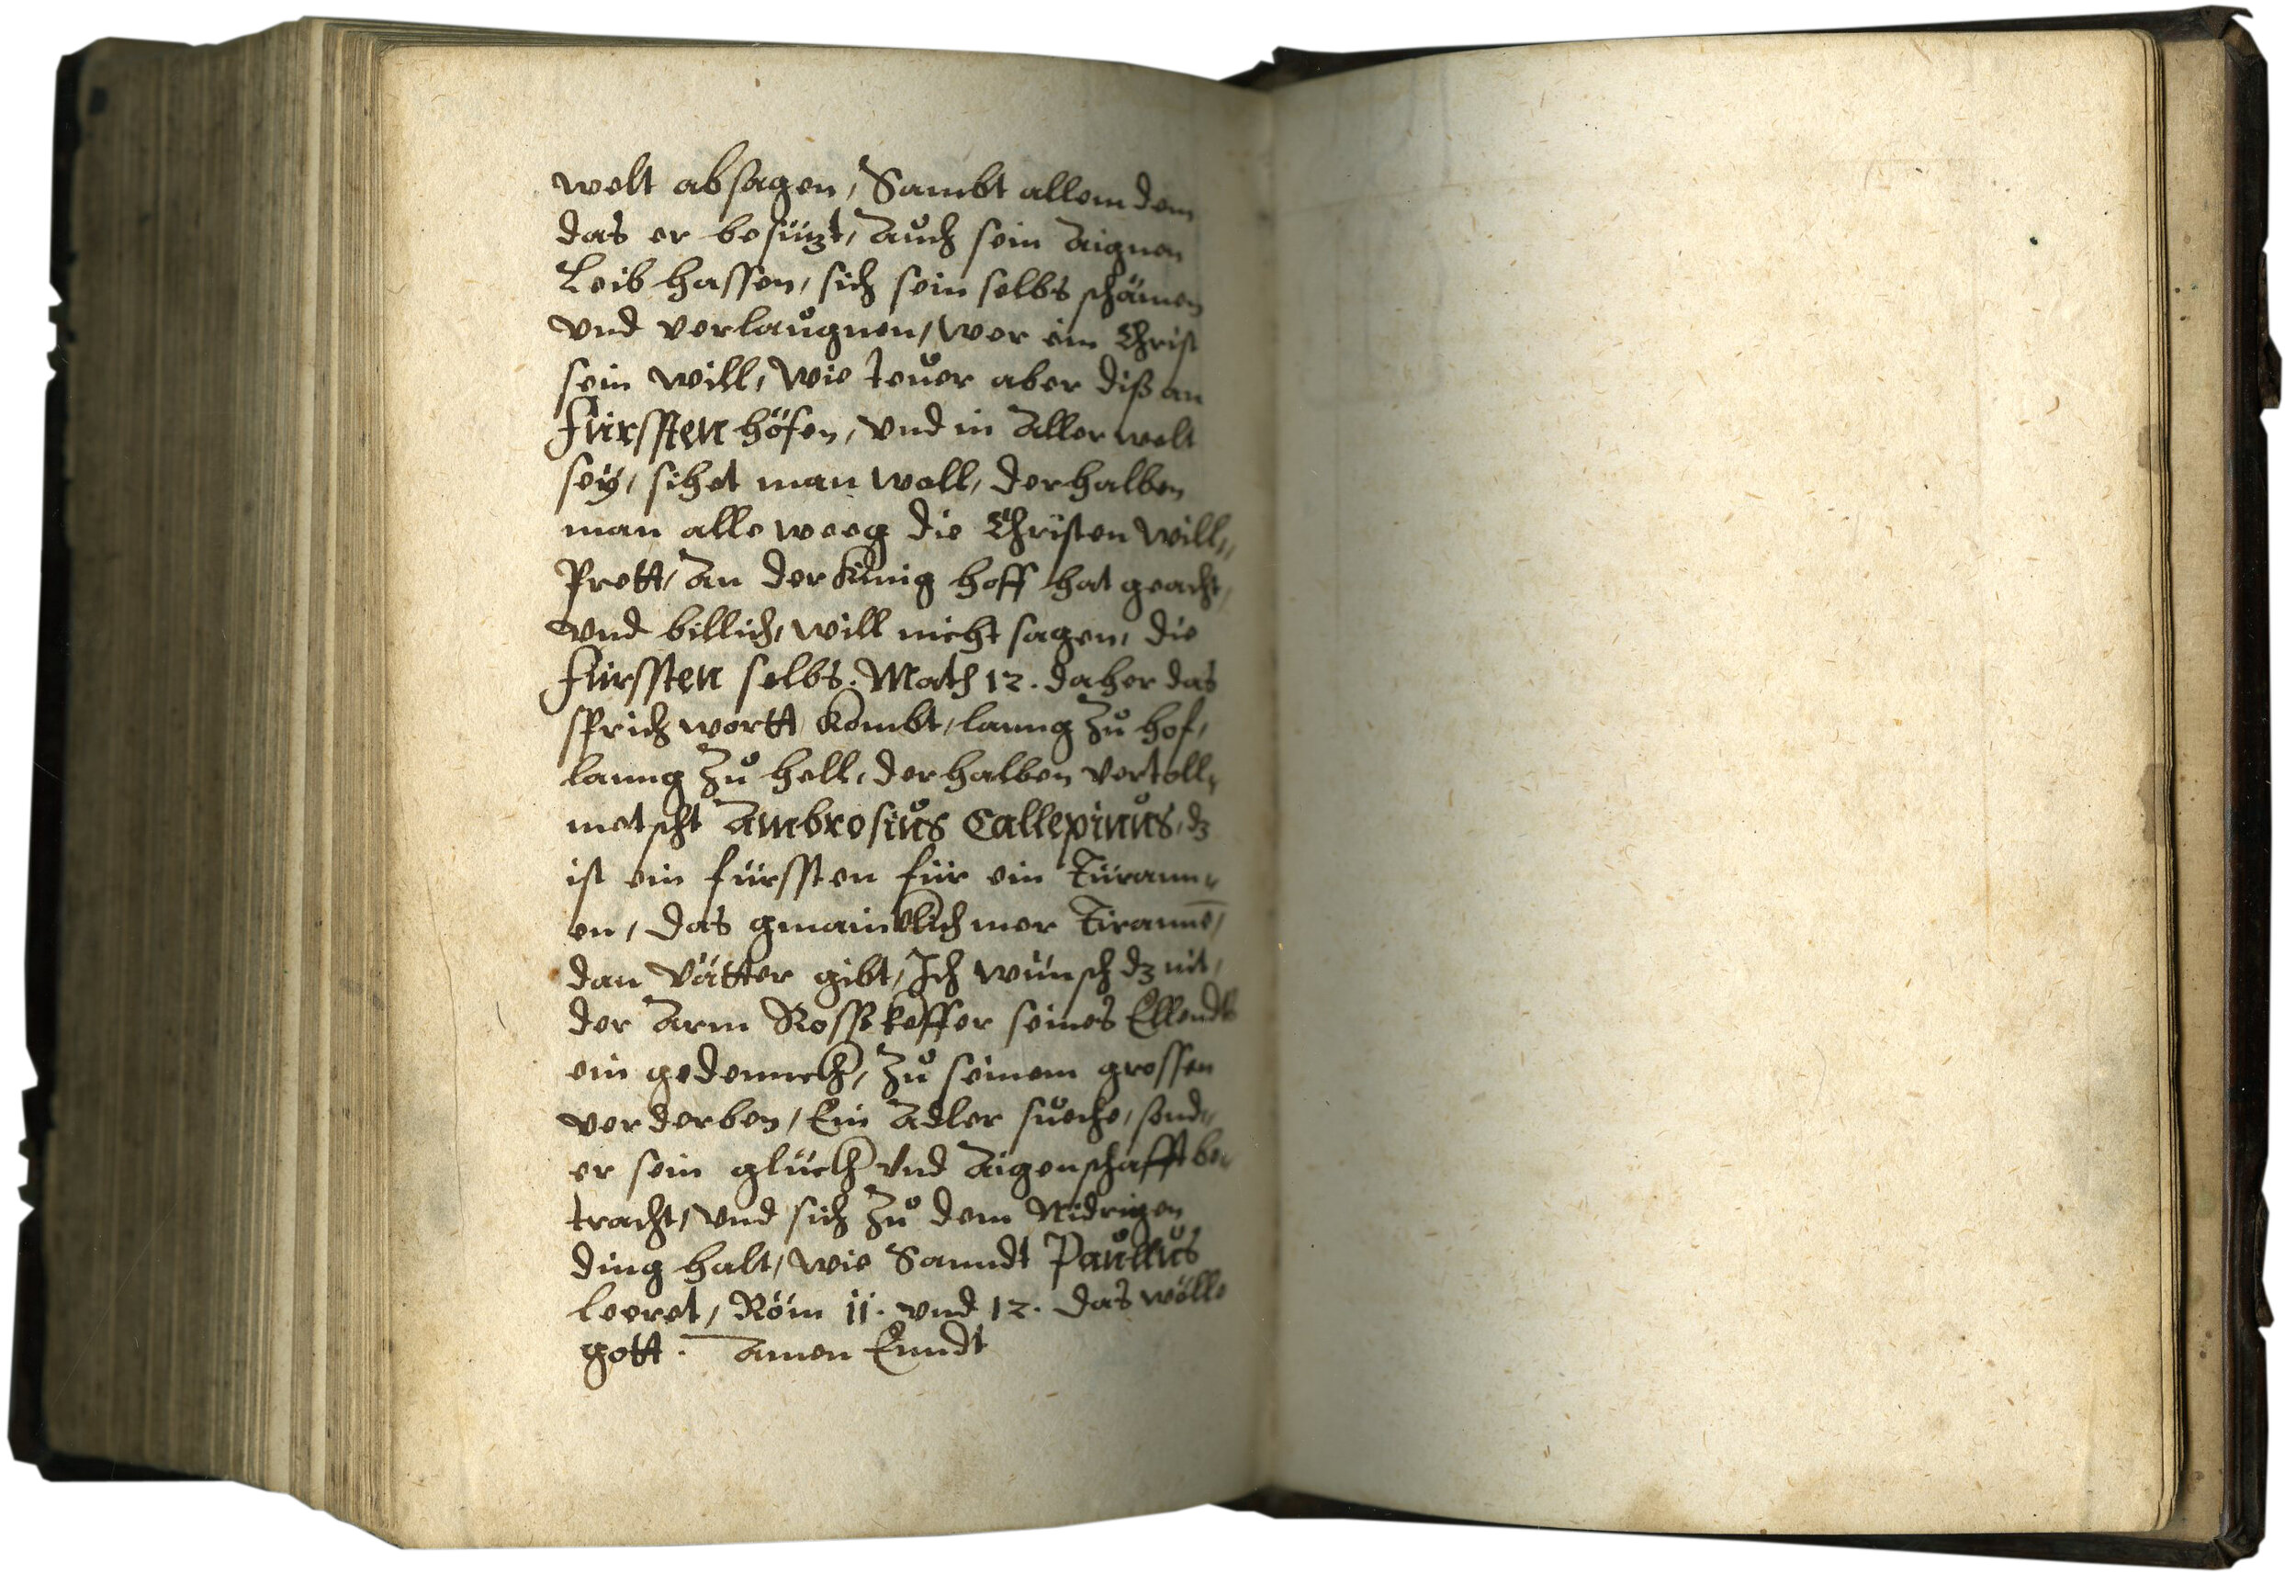 welt absagen, Sambt allem dem
das er besützt, Auch sein Aignen
Leib hassen, sich sein selbs schämen
vnd verlaugnen, wer ein Christ
sein will, wie teuer aber diß an
Fürssten höfen, vnd in Aller welt
seÿ, sihet man woll, derhalben
man alle weeg die Christen will,,
Prett, An der Künig hoff hat geacht,
vnd billich, will nicht sagen, die
Fürssten selbs. Math 12. daher das
sprich wortt kombt, lanng Zů hof,
lanng Zů hell, derhalben vertoll,,
metscht Ambrosius Callepinus, dz
ist ein fürssten für ein Türann,,
en, das gmainklich mer Tirannē,
dan Vätter gibt, Ich wünsch dz nit,
der Arm Rosskeffer seines Ellendts
ein gedennckh, Zů seinem grossen
verderben, Ein Adler sueche, sond,,
er sein glückh vnd Aigenschafft be,,
tracht, vnd sich Zů dem Nidrigen
ding halt, wie Sanndt Paullus
leeret, Röm 11. vnd 12. das wölle
gott. Amen Enndt